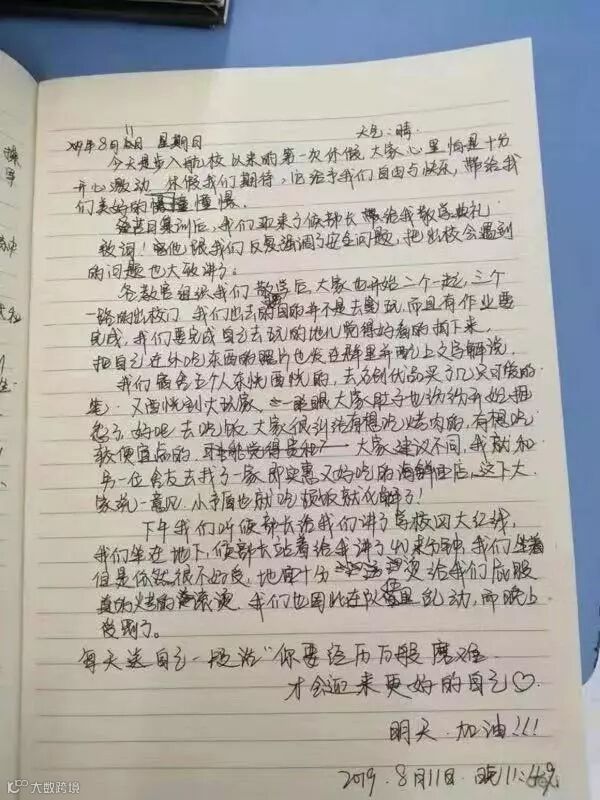 2019年8月11日 星期日 天气:晴
今天是步入航校以来的第一次休假,大家心里怕是十分
开心激动,休假我们期待,它给予我们自由与快乐,带给我
们美好的憧憬
集训后,我们迎来了侯部长带给我散营典礼
致词!他跟我们反复强调了安全问题,把出校会遇到
的问题也大致讲了。
各教官组织我们散营后,大家也开始二个一起,三个
一路的出校门,我们出去的目的并不是去乱玩,而且有作业要
完成,我们要完成自己去玩的地儿觉得好看的拍下来,
把自己在外吃东西的照片也发在群里并配上文字解说,
我们宿舍五个人东恍西恍的,去名创优品买了几只可爱的
笔,又西恍到大玩家,一眨眼大家肚子也纷纷开始捱
怨了,好吧去吃饭,大家很纠结有想吃烤肉的,有想吃
较便宜点的,大家建议不同,我就和
另一位舍友去找了一家即实惠又好吃的海鲜店,这下大
家统一意见,小矛盾也就吃顿饭就化解了!
下午我们听侯部长给我们讲了学校四大红线,
我们坐在地下,侯部长站着给我讲了分钟,我们坐着
但是依然很不好受,地面十分烫给我们屁股
真的烤的滚烫,我们也因此在队里乱动,而晚上
受罚了。
每天送自己一段话“你要经历万般磨难
才会迎来更好的自己♡.
明天.加油!!!
2019.8月11日.晚11:49
大数跨境